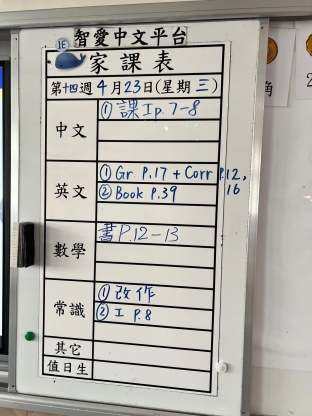 智愛中文平台
1E
家課表
第十四週 4月23日(星期三)
中文
① 課I p.7-8
英文
① Gr P.17 + Corr P.12, 16
② Book P.39
數學
書P.12-13
常識
① 改作
② I P.8
其它
值日生
角
2